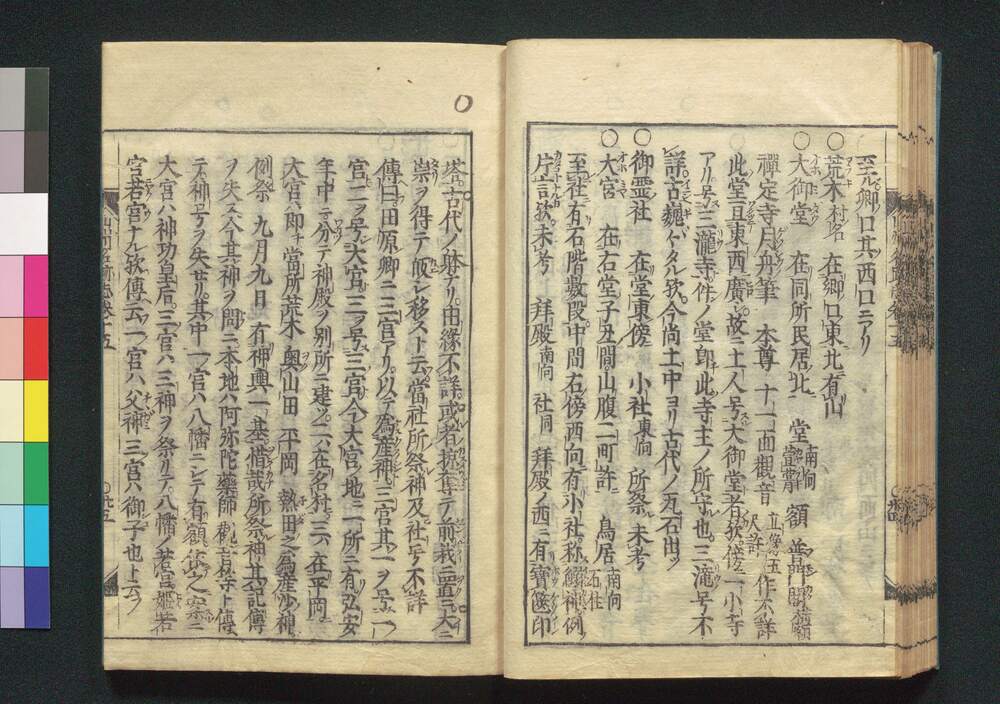 至ル郷ノ口其西口ニアリ
○荒木村名 在郷ノ口東北ニ有山
○大御堂 在同所民居北 堂南向 額 普門閣
禪定寺月舟筆 本尊 十一面觀音 立像五尺許 作不詳
此堂且東西廣シ故ニ土人号大御堂者歟傍ニ一小寺
アリ号三瀧寺件ノ堂即此寺主ノ所守也三滝号不
詳古巍々タル歟今尚土中ヨリ古代ノ瓦石出ツ
○御霊社 在堂東傍 小社東向 所祭未考
○大宮 在右堂子丑間山腹二町許 鳥居南向石柱
至社有石階數段中間右傍西向有小社称鰯神例
片言歟未考 拜殿南向 社同 拜殿ノ西ニ有寶篋印
塔古代ノ躰ナリ由縁不詳或者掠奪テ前栽ニ置云大ニ
崇ヲ得テ皈シ移スト云當社所祭神及社号不詳
傳曰田原郷ニ三宮アリ以テ為産神三宮其一ヲ号一ノ
宮二ヲ号大宮三ヲ号三宮今大宮ノ地ニ一所ニ有弘安
年中ニ分テ神殿ヲ別所ニ建ツ二ハ在名村三ハ在平岡
大宮ハ即チ當所荒木奥山田 平岡 熱田之為産沙神
例祭 九月九日 有神輿一基惜哉所祭神其記傳
ヲ失ス今其神ヲ問ニ本地ハ阿弥陀藥師觀音等ト傳
テ神号ヲ失セリ其中一ノ宮ハ八幡ニシテ有額依之案ニ
大宮ハ神功皇后三宮ハ三神ヲ祭リテ八幡ノ若宮姫若
宮若宮ナル歟傳云一ノ宮ハ父神三宮ハ御子也ト云フ